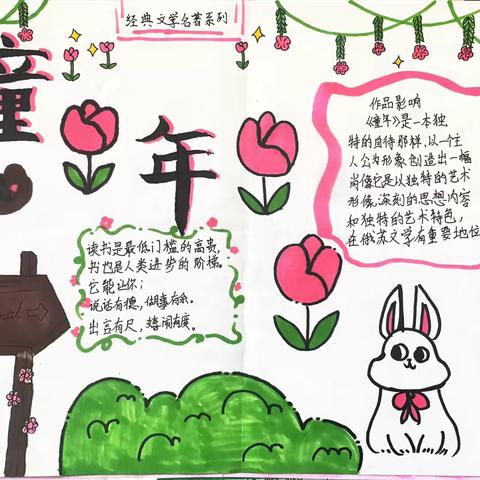 经典文学名著系列
童
年
读书是最低门槛的高贵,
书也是人类进步的阶梯。
它能让你;
说话有德,做事有
出言有尺,嬉闹有度。
作品影响
《童年》是一本独
特的自待那样,以一个主
人公为形象创造出一幅
肖像它是以独特的艺术
形像,深刻的思想内容
和独特的艺术特色,
在俄苏文学有重要地位